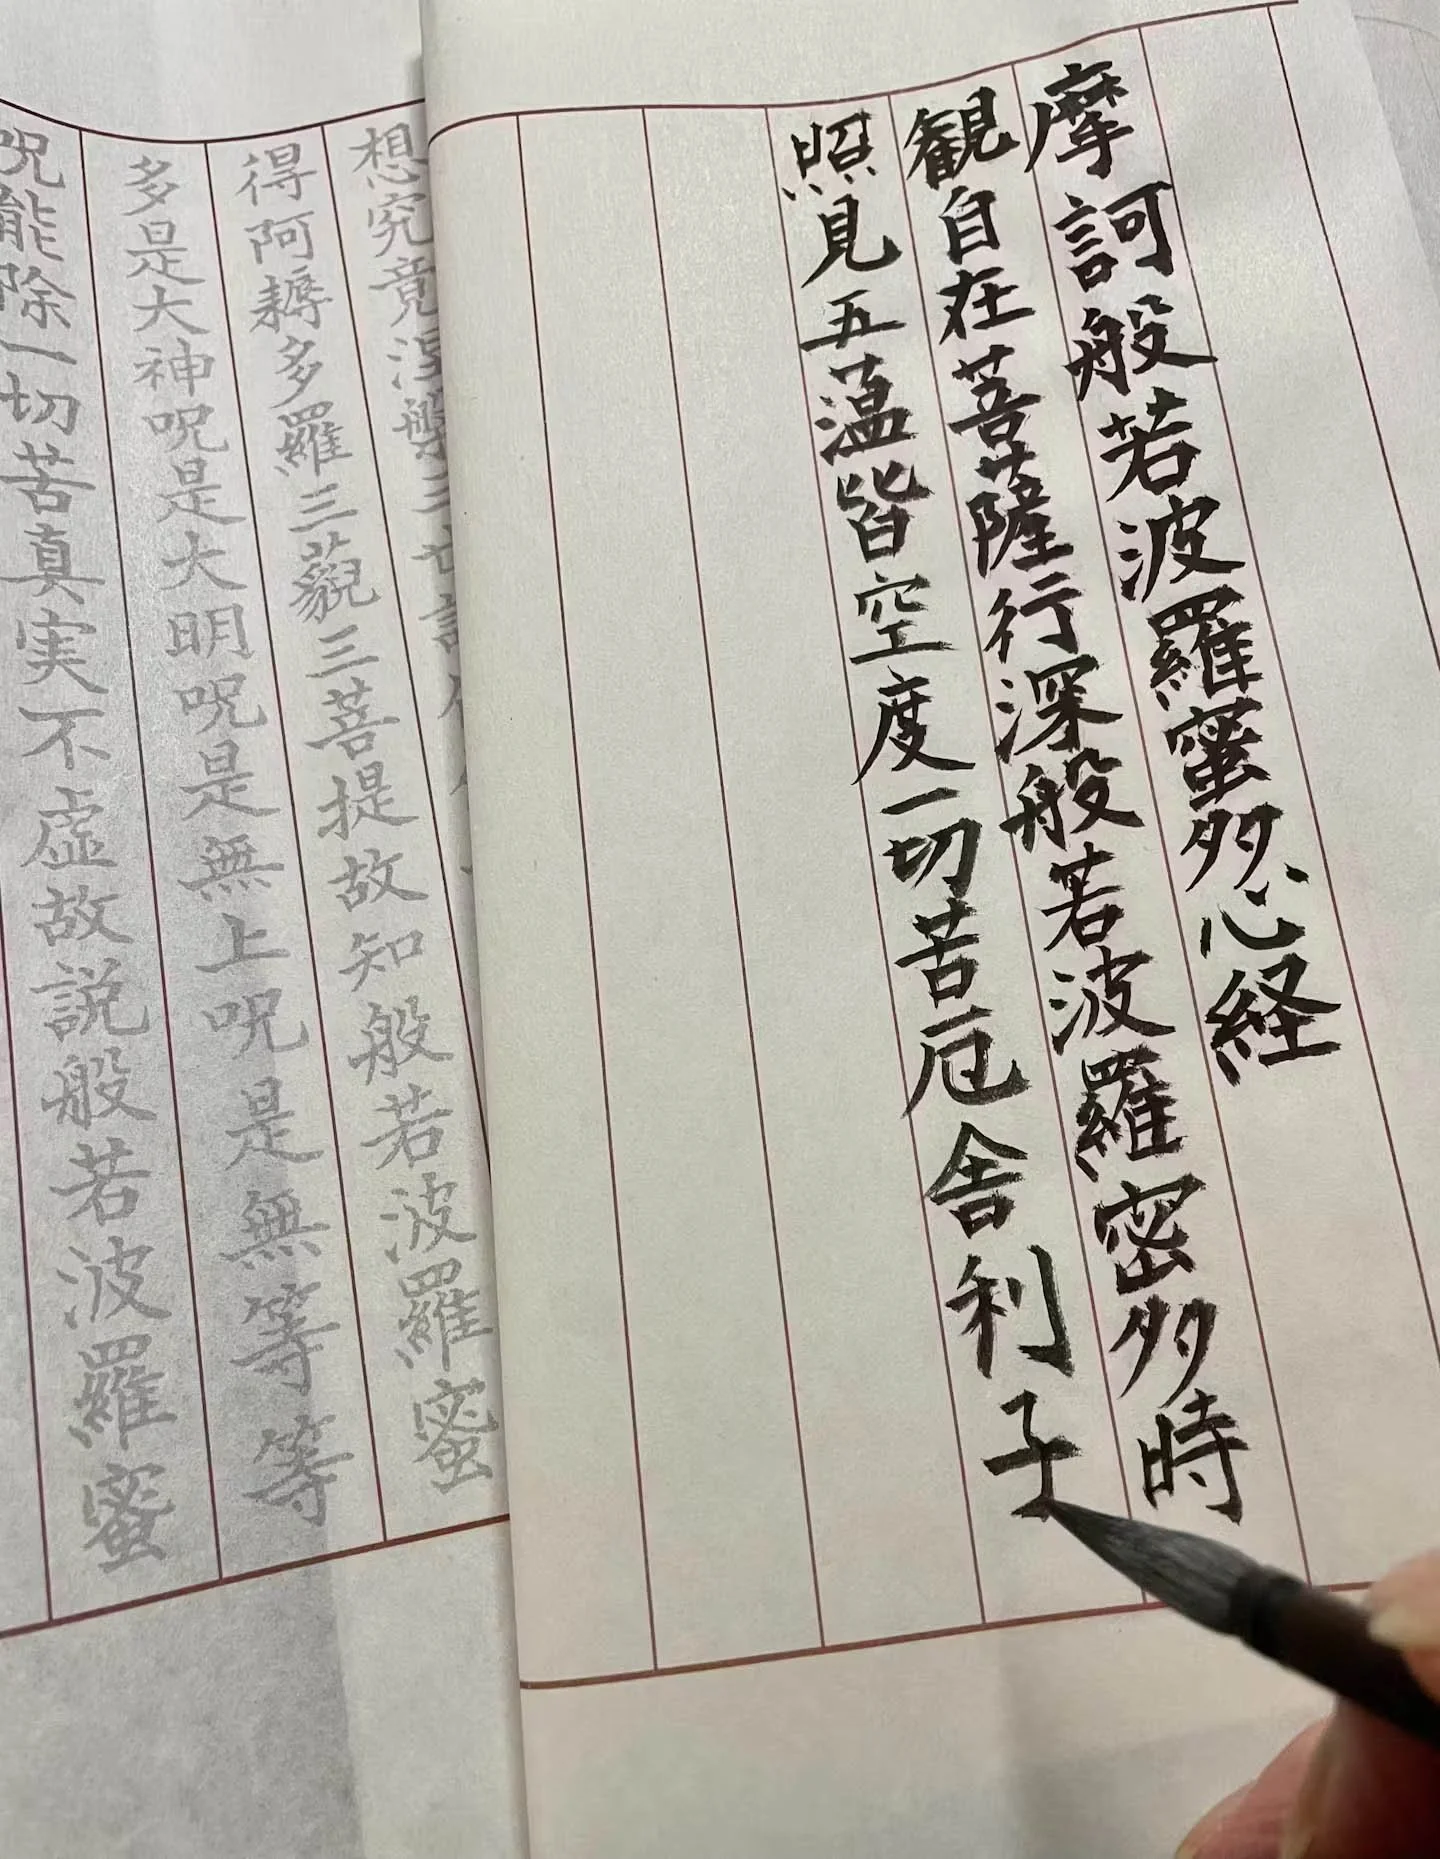 摩訶般若波羅蜜多心経
観自在菩薩行深般若波羅密多時
照見五薀皆空度一切苦厄舎利子
想究竟涅槃三世諸
得阿耨多羅三藐三菩提故知般若波羅蜜
多是大神呪是大明呪是無上呪是無等等
呪能除一切苦真実不虚故説般若波羅蜜